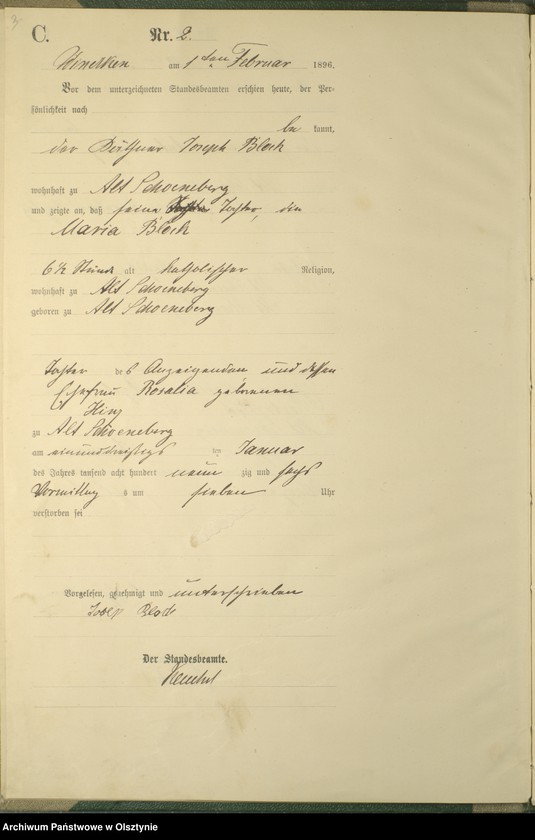 3
C. Nr. 2.
am 1ten Februar 1896.
Vor dem unterzeichneten Standesbeamten erschien heute, der Per-
sönlichkeit nach
be kannt,
der Joseph Block
wohnhaft zu Alt Schoeneberg
und zeigte an, daß seine Tochter, die
Maria Block
6 1/2 Stunde alt katholischer Religion,
wohnhaft zu Alt Schoeneberg
geboren zu Alt Schoeneberg
Tochter des Anzeigenden und dessen
Ehefrau Rosalia geborenen
Hinz
zu Alt Schoeneberg
am einunddreißigs ten Januar
des Jahres tausend acht hundert neun zig und sechs
Vormittag s um sieben Uhr
verstorben sei
Vorgelesen, genehmigt und unterschrieben
Josep Block
Der Standesbeamte.
Archiwum Państwowe w Olsztynie